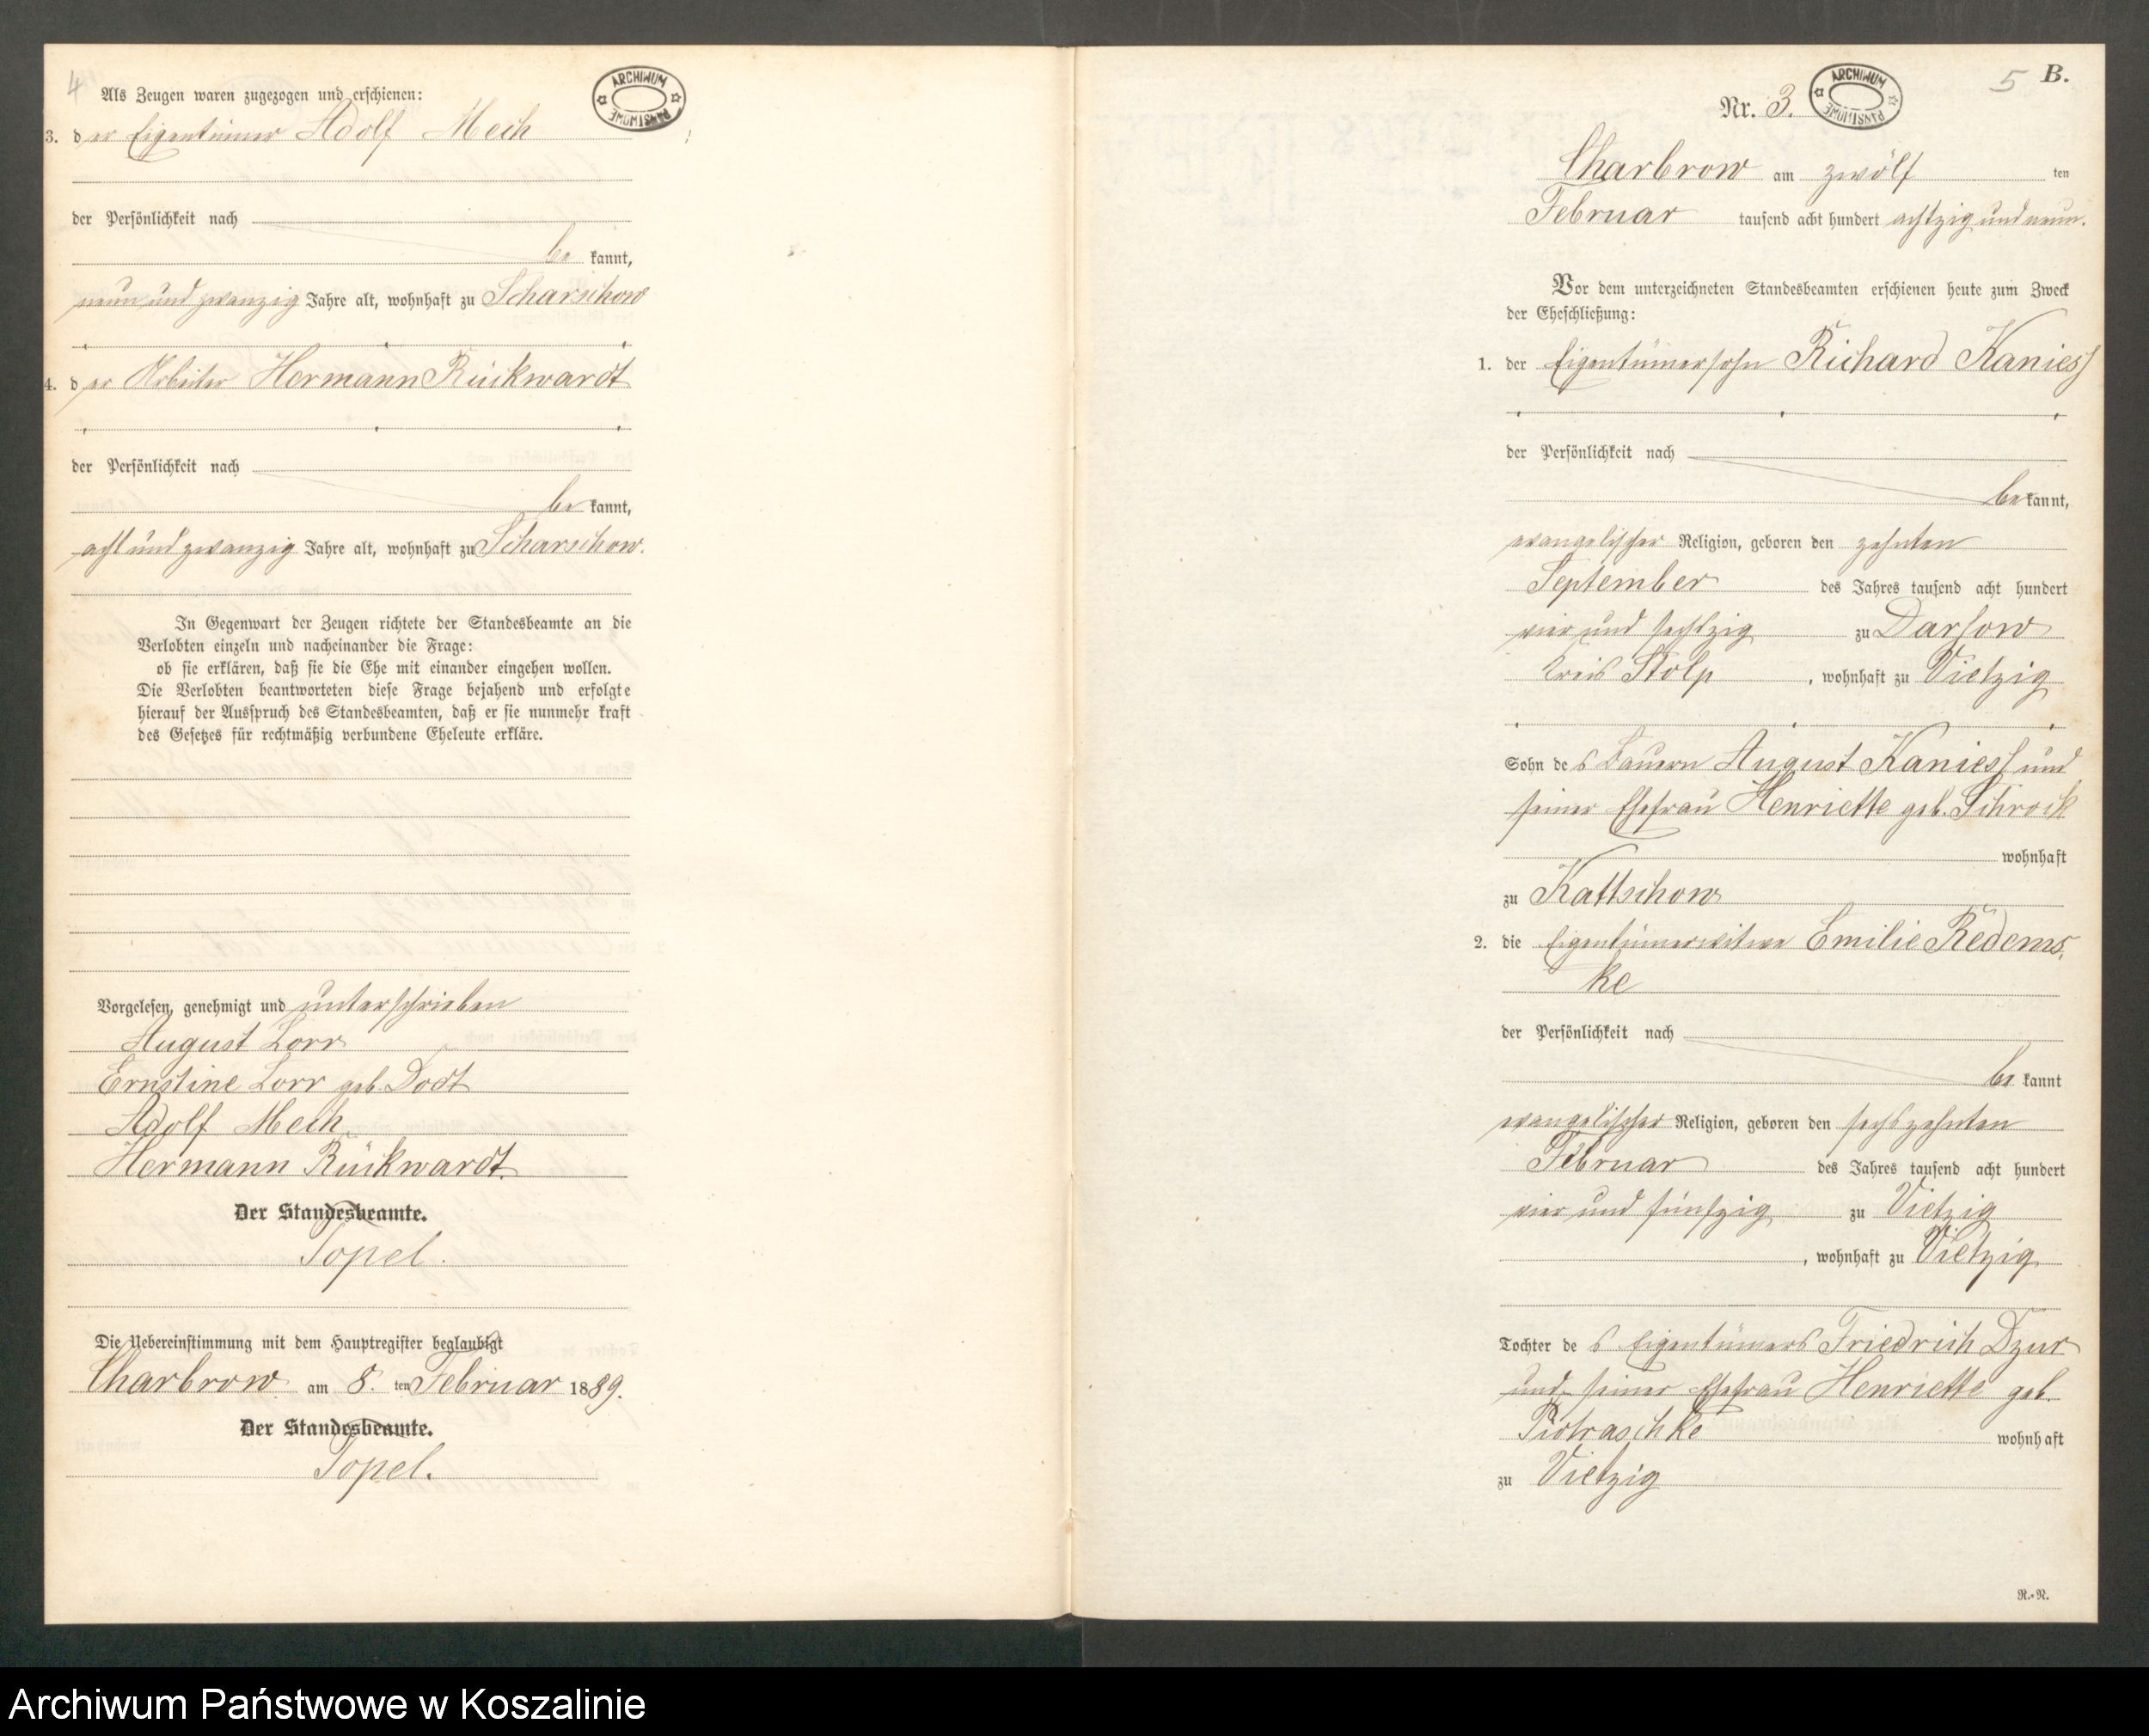 4
ARCHIWUM PAŃSTWOWE
Als Zeugen waren zugezogen und erschienen:
3. der Eigentümer Adolf Mech
der Persönlichkeit nach
be kannt,
neun und zwanzig Jahre alt, wohnhaft zu Scharschow
4. der Arbeiter Hermann Rückwardt
der Persönlichkeit nach
be kannt,
acht und zwanzig Jahre alt, wohnhaft zu Scharschow.
In Gegenwart der Zeugen richtete der Standesbeamte an die
Verlobten einzeln und nacheinander die Frage:
ob sie erklären, daß sie die Ehe mit einander eingehen wollen.
Die Verlobten beantworteten diese Frage bejahend und erfolgte
hierauf der Ausspruch des Standesbeamten, daß er sie nunmehr kraft
des Gesetzes für rechtmäßig verbundene Eheleute erkläre.
Vorgelesen, genehmigt und unterschrieben
August Lorr
Ernstine Lorr geb. Dodt
Adolf Mech
Hermann Rückwardt.
Der Standesbeamte.
Topel.
Die Uebereinstimmung mit dem Hauptregister beglaubigt
Charbrow am 8. ten Februar 1889.
Der Standesbeamte.
Topel.
5 B.
ARCHIWUM PAŃSTWOWE
Nr. 3.
Charbrow am zwölf ten
Februar tausend acht hundert achtzig und neun.
Vor dem unterzeichneten Standesbeamten erschienen heute zum Zweck
der Eheschließung:
1. der Eigentümersohn Richard Kaniess
der Persönlichkeit nach
be kannt,
evangelischer Religion, geboren den zehnten
September des Jahres tausend acht hundert
vier und sechszig zu Darsow
Kreis Stolp, wohnhaft zu Vietzig
Sohn des Bauern August Kaniess und
seiner Ehefrau Henriette geb. Schrock
wohnhaft
zu Kattschow
2. die Eigentümerwitwe Emilie Redems-
ke
der Persönlichkeit nach
be kannt
evangelischer Religion, geboren den sechszehnten
Februar des Jahres tausend acht hundert
vier und fünfzig zu Vietzig
, wohnhaft zu Vietzig
Tochter des Eigentümers Friedrich Dzur
und seiner Ehefrau Henriette geb.
Piotraschke wohnhaft
zu Vietzig
R.-N.
Archiwum Państwowe w Koszalinie